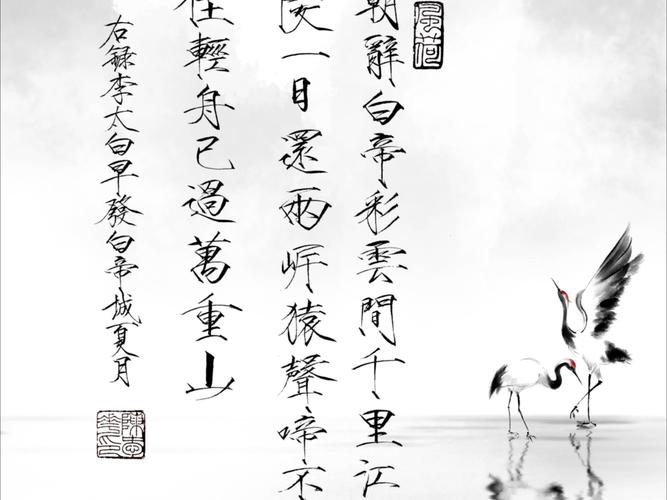 風荷
朝辭白帝彩雲間千里江
陵一日還兩岸猿聲啼不
住輕舟已過萬重山
右錄李太白早發白帝城夏月